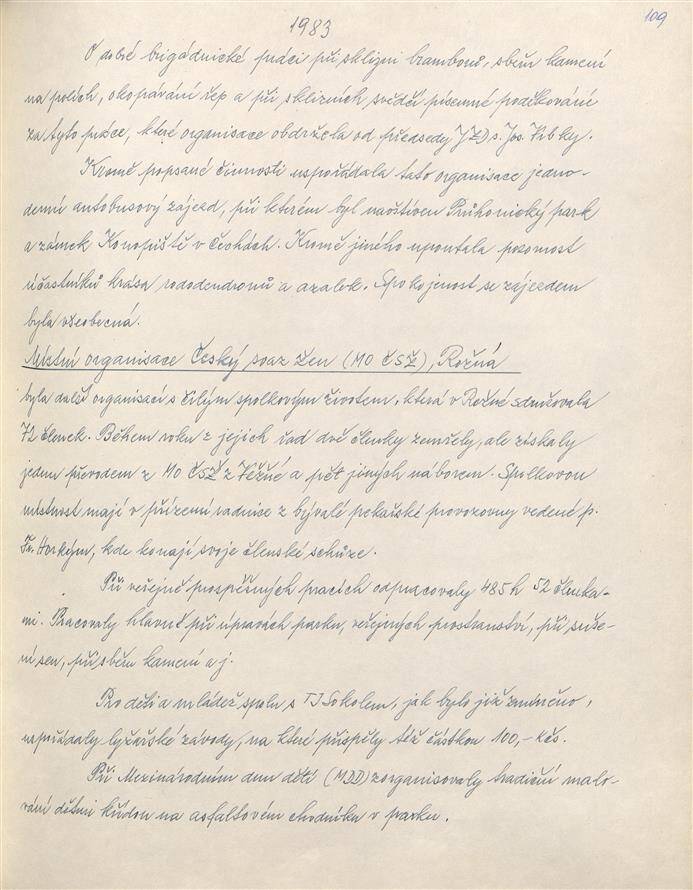 109
1983
O dobré brigádnické práci při sklizni brambor, sběru kamení
na polích, okopávání řep a při sklizních svědčí písemné poděkování
za tyto práce, které organisace obdržela od předsedy JZD s. Jos. Vibky.
Kromě popsané činnosti uspořádala tato organisace jedno-
denní autobusový zájezd, při kterém byl navštíven Průhonický park
a zámek Konopiště v Čechách. Kromě jiného upoutala pozornost
účastníků krása rododendronů a azalek. Spokojenost se zájezdem
byla všeobecná.
Místní organisace Český svaz žen (MO ČSŽ), Rožná
byla další organisací s čilým spolkovým životem, která v Rožné sdružovala
72 členek. Během roku z jejich řad dvě členky zemřely, ale získaly
jednu převodem z MO ČSŽ z Věžné a pět jiných náborem. Spolkovou
místnost mají v přízemí radnice z bývalé pekařské provozovny vedené p.
Fr. Horkým, kde konají svoje členské schůze.
Při veřejně prospěšných pracích odpracovaly 485 h 52 členka-
mi. Pracovaly hlavně při úpravách parku, veřejných prostranství, při suše-
ní sen, při sběru kamení a j.
Pro děti a mládež spolu s TJ Sokolem, jak bylo již zmíněno,
uspořádaly lyžařské závody, na které přispěly též částkou 100,- Kčs.
Při Mezinárodním dnu dětí (MDD) zorganisovaly tradiční malo-
vání dětmi křídou na asfaltovém chodníku v parku.